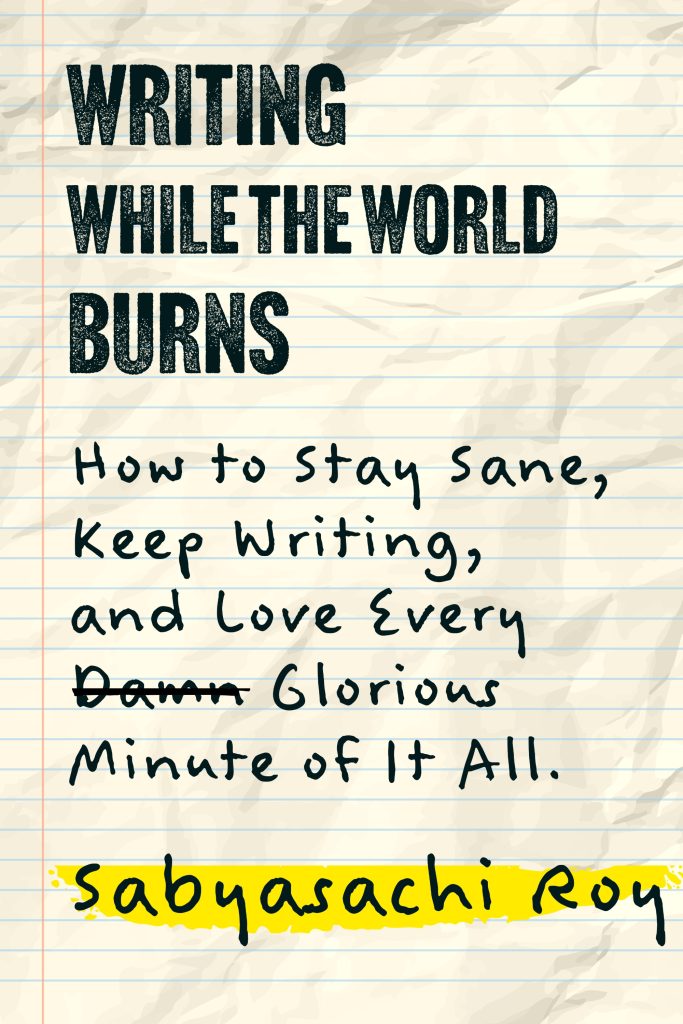 WRITING
WHILE THE WORLD
BURNS
How to Stay Sane,
Keep Writing,
and Love Every
Damn Glorious
Minute of It All.
Sabyasachi Roy